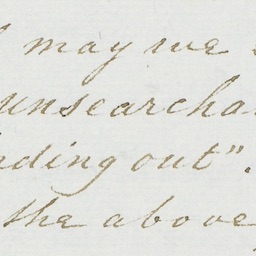 may we
unsearcha
nding out".
the above